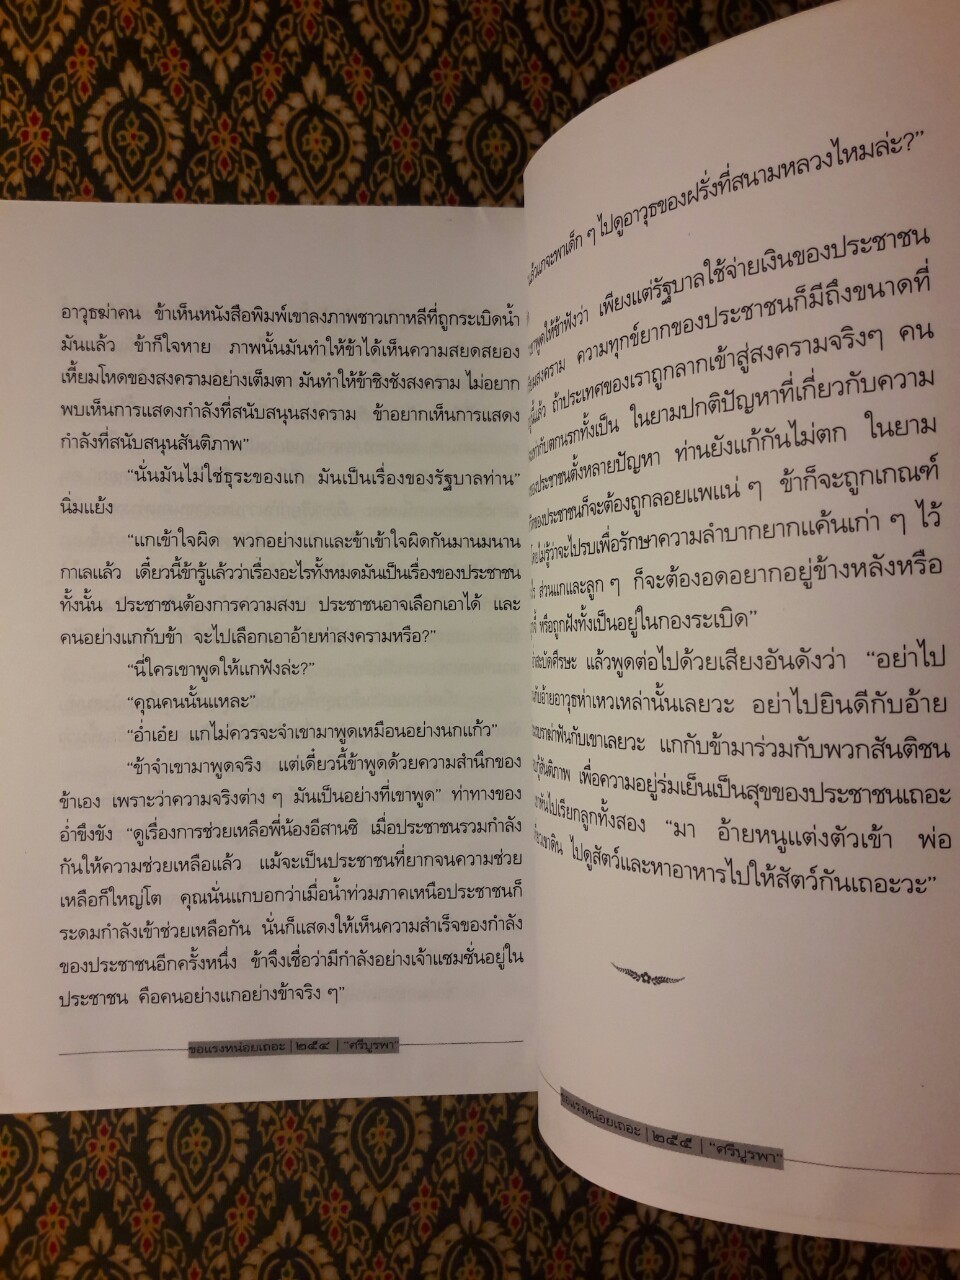 อาวุธฆ่าคน ข้าเห็นหนังสือพิมพ์เขาลงภาพชาวเกาหลีที่ถูกระเบิดน้ำ
มันแล้ว ข้าก็ใจหาย ภาพนั้นมันทำให้ข้าได้เห็นความสยดสยอง
เหี้ยมโหดของสงครามอย่างเต็มตา มันทำให้ข้าชิงชังสงคราม ไม่อยาก
พบเห็นการแสดงกำลังที่สนับสนุนสงคราม ข้าอยากเห็นการแสดง
กำลังที่สนับสนุนสันติภาพ”
“นั่นมันไม่ใช่ธุระของแก มันเป็นเรื่องของรัฐบาลท่าน”
นิ่มแย้ง
“แกเข้าใจผิด พวกอย่างแกและข้าเข้าใจผิดกันมานมนาน
กาเลแล้ว เดี๋ยวนี้ข้ารู้แล้วว่าเรื่องอะไรทั้งหมดมันเป็นเรื่องของประชาชน
ทั้งนั้น ประชาชนต้องการความสงบ ประชาชนอาจเลือกเอาได้ และ
คนอย่างแกกับข้า จะไปเลือกเอาอ้ายห่าสงครามหรือ?”
“นี่ใครเขาพูดให้แกฟังล่ะ?”
“คุณคนนั้นแหละ”
“อ่ำเอ๋ย แกไม่ควรจะจำเขามาพูดเหมือนอย่างนกแก้ว”
“ข้าจำเขามาพูดจริง แต่เดี๋ยวนี้ข้าพูดด้วยความสำนึกของ
ข้าเอง เพราะว่าความจริงต่าง ๆ มันเป็นอย่างที่เขาพูด” ท่าทางของ
อ่ำขึงขัง “ดูเรื่องการช่วยเหลือพี่น้องอีสานซิ เมื่อประชาชนรวมกำลัง
กันให้ความช่วยเหลือแล้ว แม้จะเป็นประชาชนที่ยากจนความช่วย
เหลือก็ใหญ่โต คุณนั่นแกบอกว่าเมื่อน้ำท่วมภาคเหนือประชาชนก็
ระดมกำลังเข้าช่วยเหลือกัน นั่นก็แสดงให้เห็นความสำเร็จของกำลัง
ของประชาชนอีกครั้งหนึ่ง ข้าจึงเชื่อว่ามีกำลังอย่างเจ้าแซมซั่นอยู่ใน
ประชาชน คือคนอย่างแกอย่างข้าจริง ๆ”
ขอแรงหน่อยเถอะ | ๒๕๔ | “ศรีบูรพา”
แกจะพาเด็ก ๆ ไปดูอาวุธของฝรั่งที่สนามหลวงไหมล่ะ?”
พูดให้ข้าฟังว่า เพียงแต่รัฐบาลใช้จ่ายเงินของประชาชน
สงคราม ความทุกข์ยากของประชาชนก็มีถึงขนาดที่
นี้แล้ว ถ้าประเทศของเราถูกลากเข้าสู่สงครามจริงๆ คน
เท่ากับตกนรกทั้งเป็น ในยามปกติปัญหาที่เกี่ยวกับความ
ของประชาชนตั้งหลายปัญหา ท่านยังแก้กันไม่ตก ในยาม
ของประชาชนก็จะต้องถูกลอยแพแน่ ๆ ข้าก็จะถูกเกณฑ์
ไม่รู้ว่าจะไปรบเพื่อรักษาความลำบากยากแค้นเก่า ๆ ไว้
ส่วนแกและลูก ๆ ก็จะต้องอดอยากอยู่ข้างหลังหรือ
หรือถูกฝังทั้งเป็นอยู่ในกองระเบิด”
สะบัดศีรษะ แล้วพูดต่อไปด้วยเสียงอันดังว่า “อย่าไป
กับอ้ายอาวุธห่าเหวเหล่านั้นเลยวะ อย่าไปยินดีกับอ้าย
ราฆ่าฟันกับเขาเลยวะ แกกับข้ามาร่วมกับพวกสันติชน
กู้สันติภาพ เพื่อความอยู่ร่มเย็นเป็นสุขของประชาชนเถอะ
หันไปเรียกลูกทั้งสอง “มา อ้ายหนูแต่งตัวเข้า พ่อ
เขาดิน ไปดูสัตว์และหาอาหารไปให้สัตว์กันเถอะวะ”
ขอแรงหน่อยเถอะ | ๒๕๕ | “ศรีบูรพา”